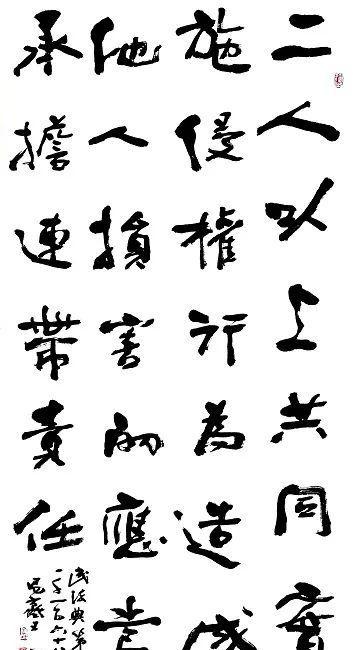 二人以上共同實
施侵權行為造成
他人損害的應當
承擔連帶責任
民法典第
一千一百六十八